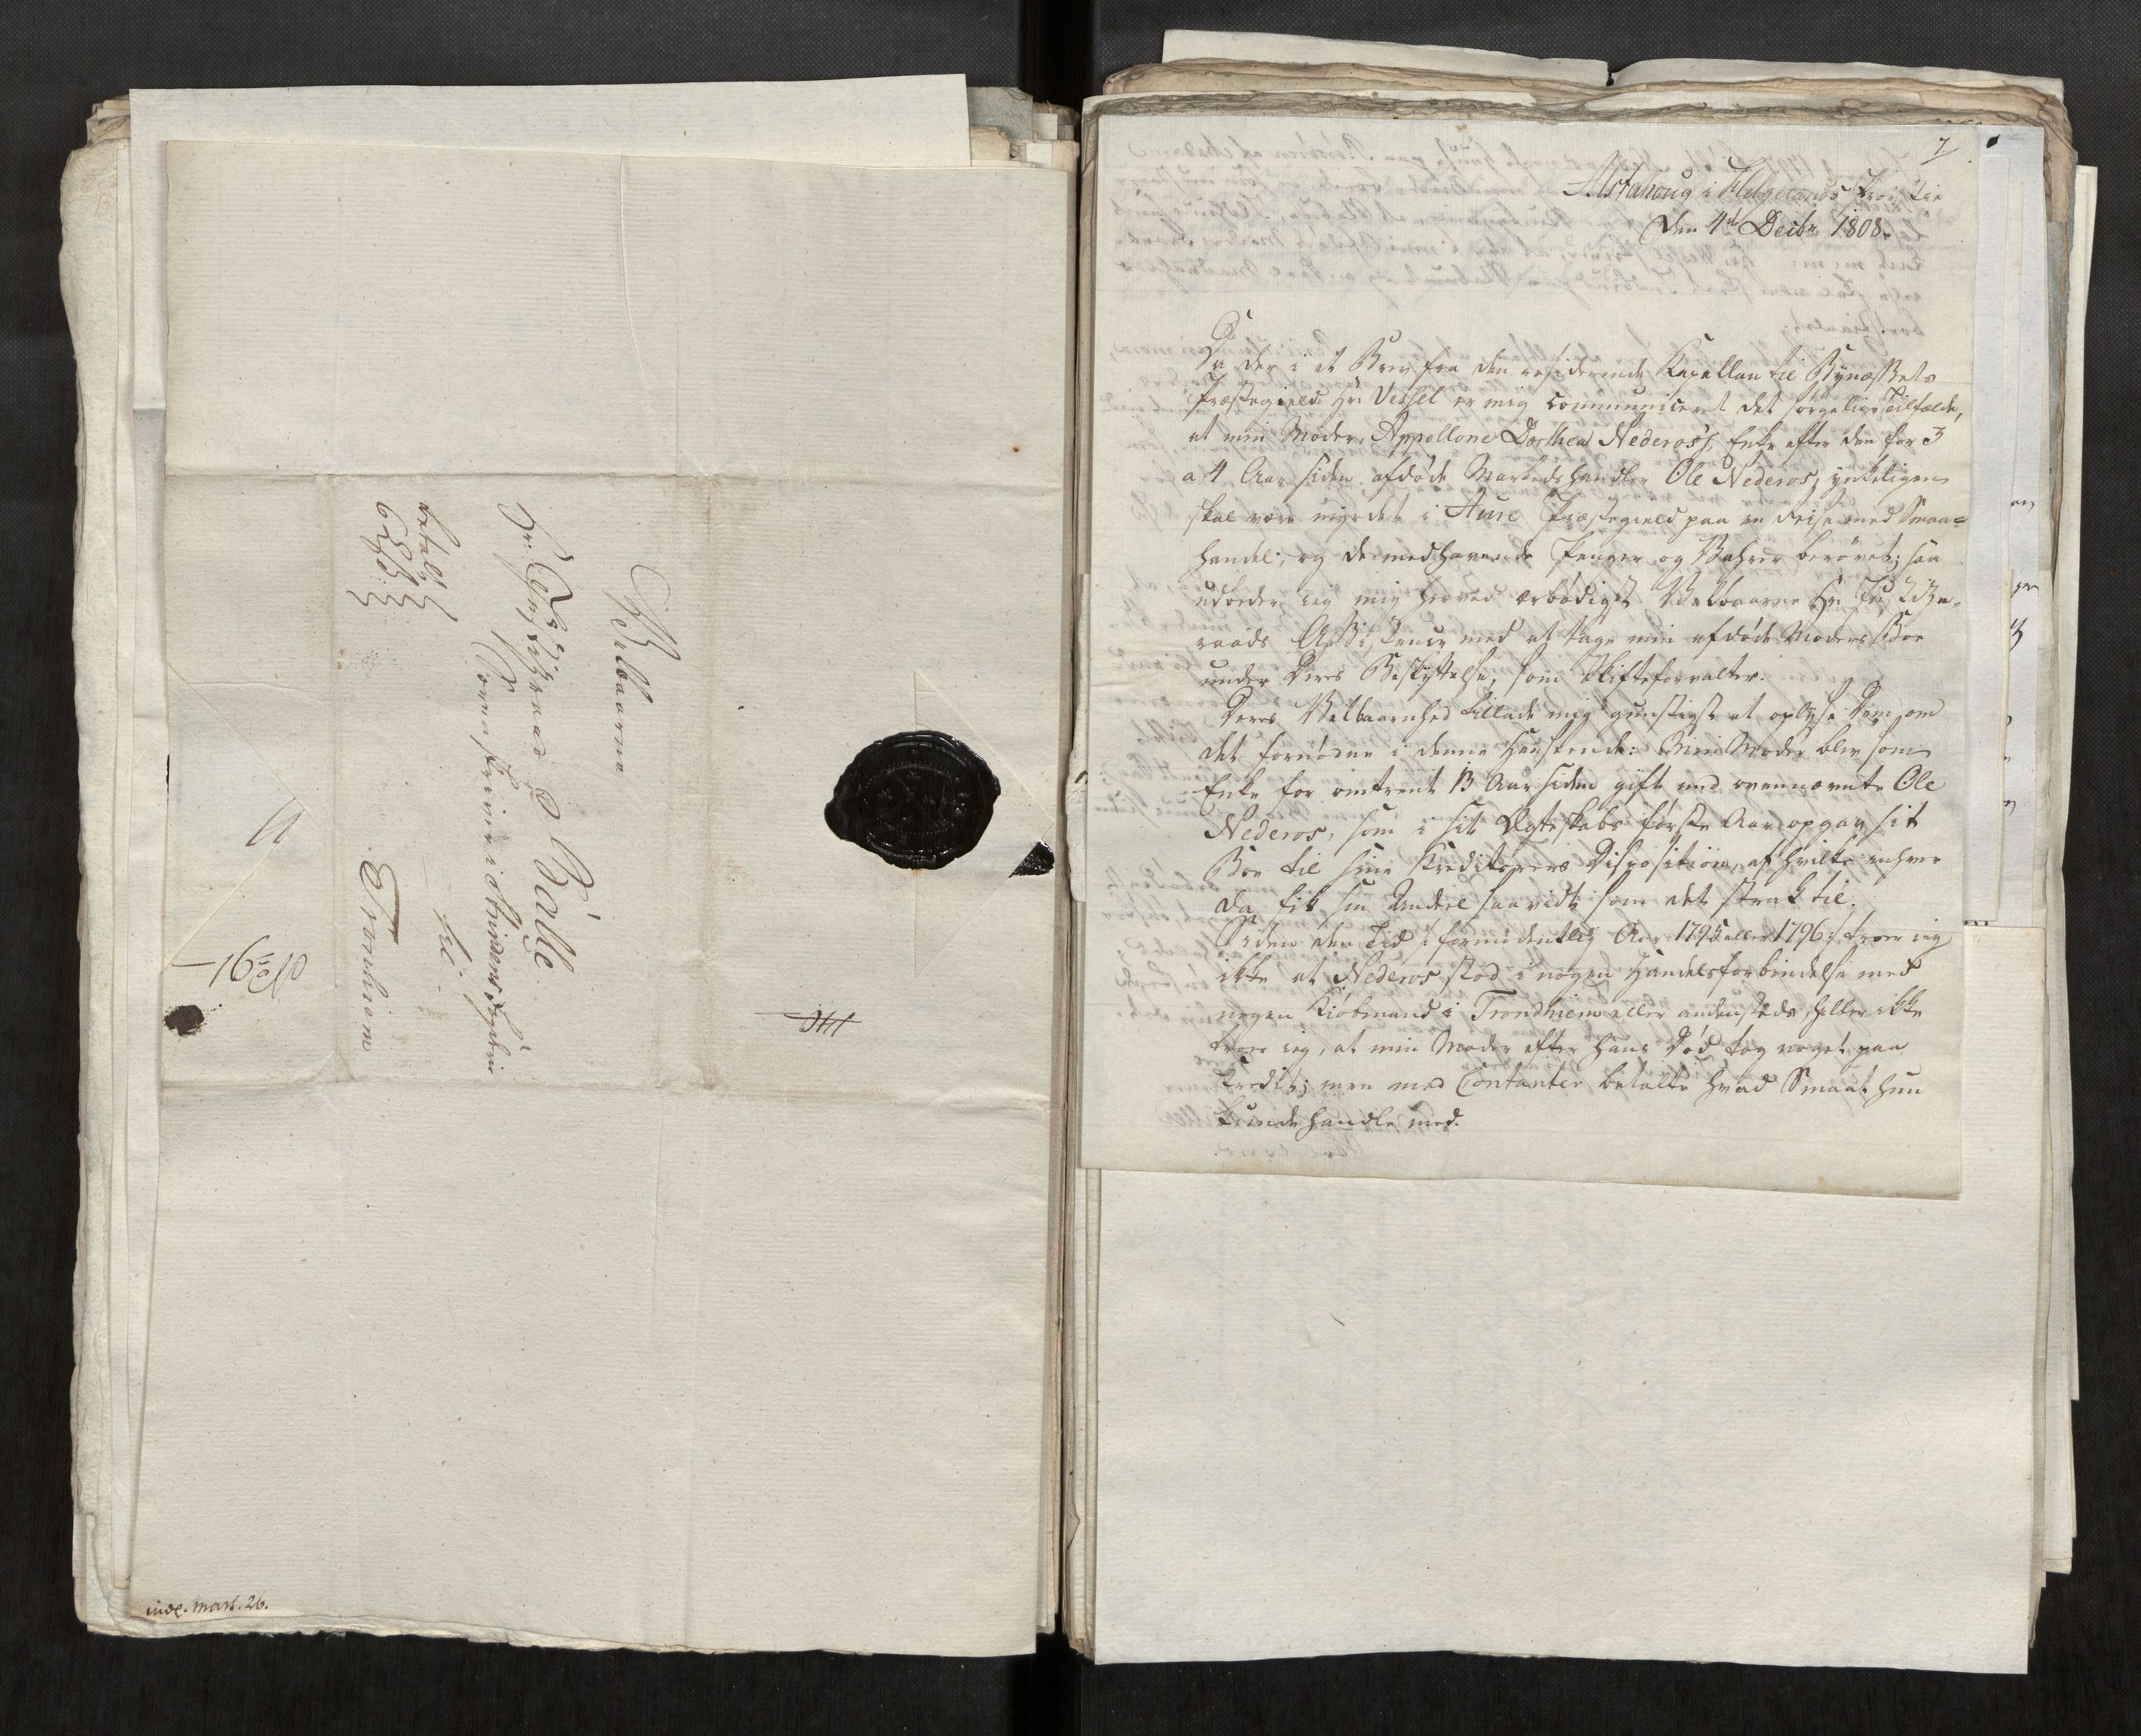 Velbaarne
Hr: Justizraad Bálle
Sorenskriver i Strindens Fogderie
til
Trondhiem
betalt
6 s
16
indl. Mart. 26.
7
Alstahoug i Helgelands Provstie
den 4de Decbr 1808.
Da der i et Brev fra den residerende Kapellan til Bynæssets
Præstegield Hr: Vessel er mig communiceret det sørgelige Tilfælde,
at min Moder, Appollone Dorthea Nederos, Enke efter den for 3
a 4 Aar siden afdøde Markedshandler Ole Nederos, ynkeligen
skal være myrdet i Aure Præstegield paa en Reise med Smaa-
handel; og de medhavende Penger og Vahrer berøvet; saa
udbeder ieg mig herved ærbødigst Velbaarne Hr: Justitz-
raads Assistence med at tage min afdøde Moders Boe
under Deres Beskyttelse, som Skifteforvalter.
Deres Velbaarnhed tillade mig gunstigst at oplyse Dem om
det fornødne i denne Henseende: Min Moder blev som
Enke for omtrent 13 Aar siden gift med ovennævnte Ole
Nederos, som i sit Ægteskabs første Aar opgav sit
Boe til sine Kreditorers Disposition, af hvilke enhver
da fik sin Andeel saavidt som det strak til.
Siden den Tid, formodentlig Aar 1795 eller 1796, troer ieg
ikke at Nederos stod i nogen Handelsforbindelse med
nogen Kiøbmand i Trondhiem eller andensteds, heller ikke
troer ieg, at min Moder efter hans Død tog noget paa
Kredit; men med Contanter betalte hvad Smaat hun
kunde handle med.